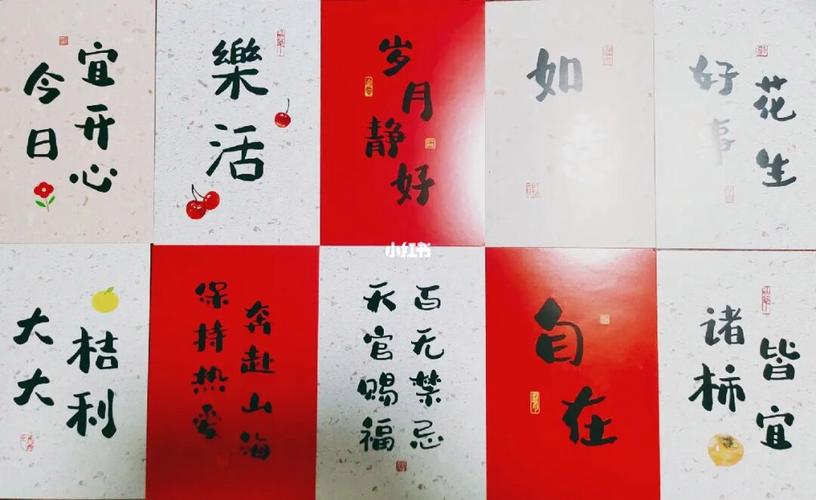 今日
宜开心
樂活
岁月
静好
如
好事
花生
小红书
大大
桔利
保持热爱
奔赴山海
天官赐福
百无禁忌
自在
诸柿
皆宜